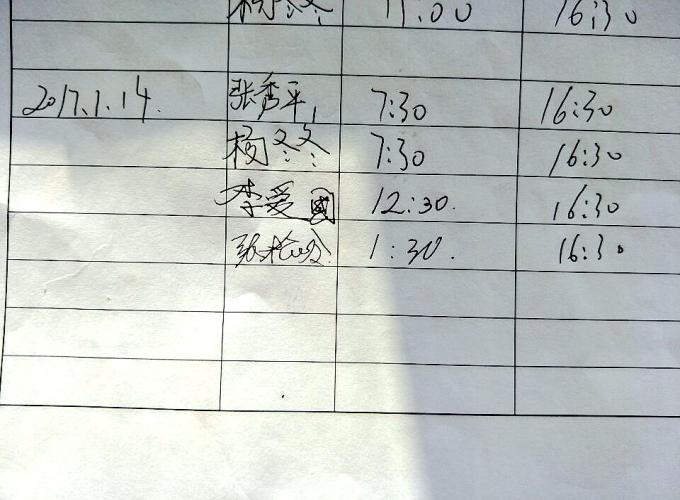 冬冬 11:00 16:30
2017.1.14. 张秀平 7:30 16:30
杨冬冬 7:30 16:30
李爱國 12:30. 16:30
张 1:30. 16:30